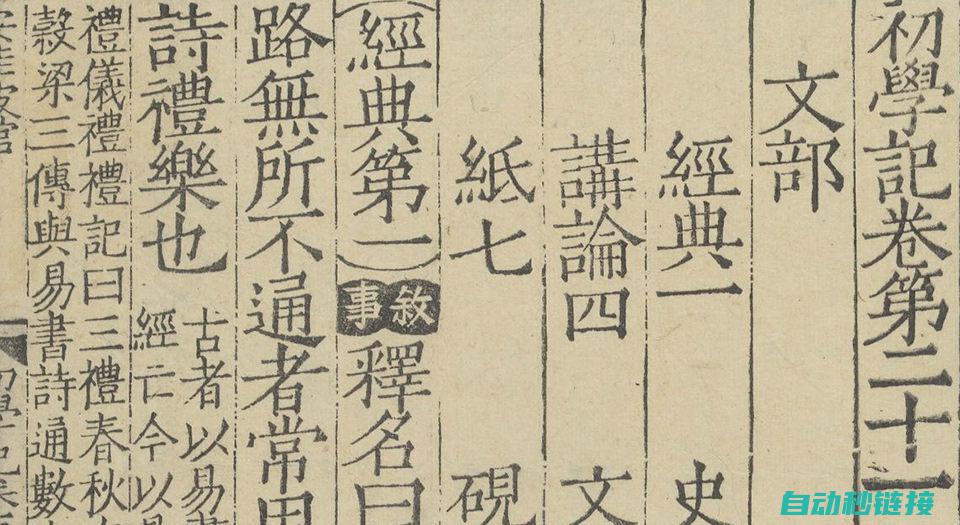 初學記卷第二十一
文部
經典一 史
講論四 文
紙七 硯
(經典第一)敘事釋名曰
路無所不通者常
詩禮樂也
古者以易
經亡今以
禮儀禮禮記曰三禮春秋
穀梁三傳與易書詩通數
自动秒链接